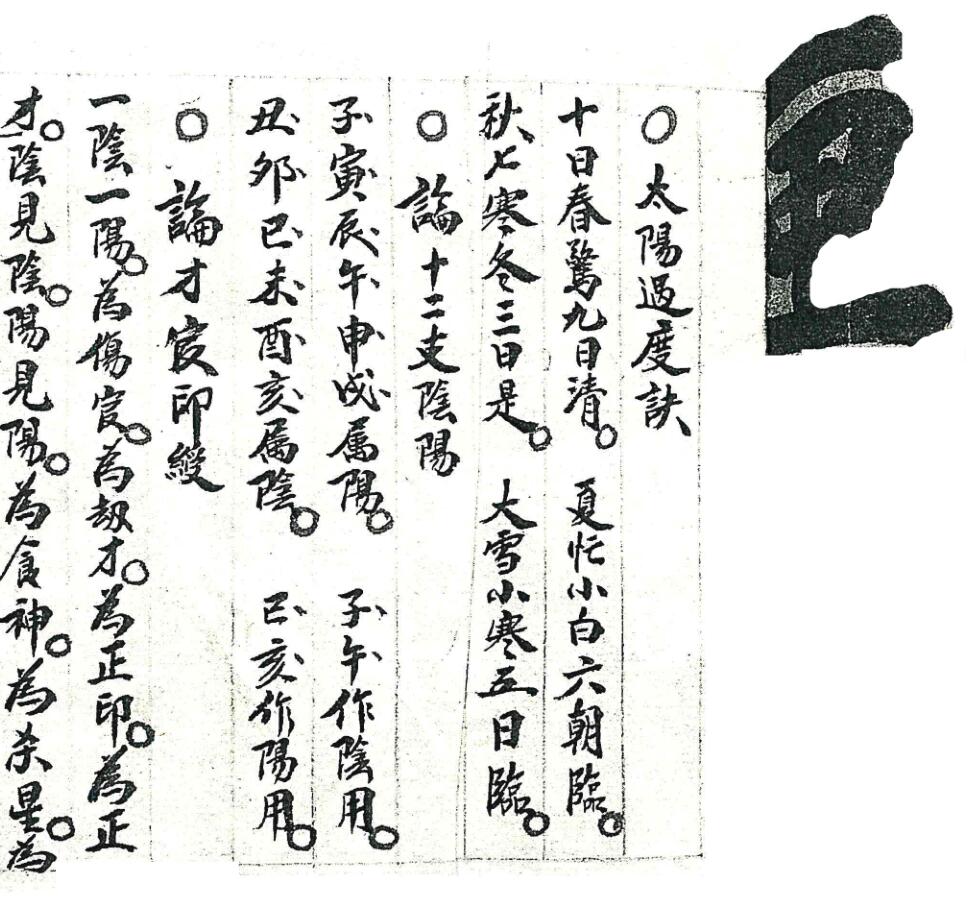 ○太陽過度訣
十日春驚九日清。夏忙小白六朝臨。
秋七寒冬三日是。大雪小寒五日臨。
○論十二支陰陽
子寅辰午申戌属陽。子午作陰用。
丑夘巳未酉亥属陰。巳亥作陽用。
○論才官印綬
一陰一陽。為傷官。為刼才。為正印。為正
才。陰見陰。陽見陽。為食神。為杀星。為